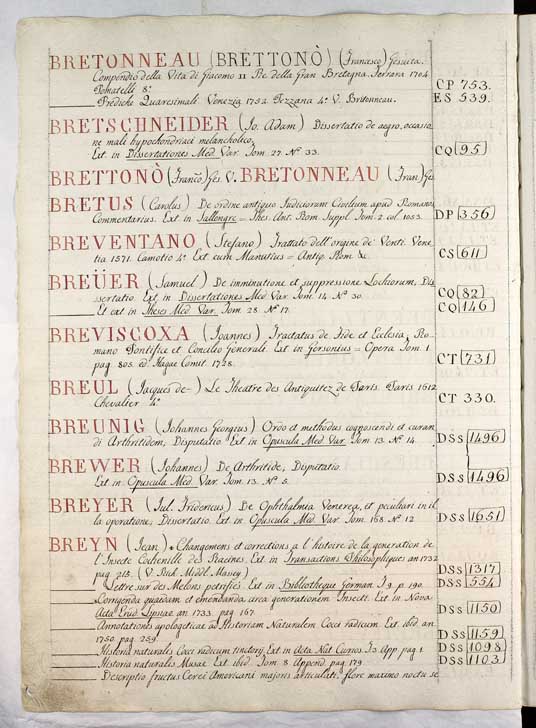 BRETONNEAU (BRETTONÒ) (Francesco) Gesuita.
Compendio della Vita di Giacomo II Re della Gran Bretagna. Ferrara 1704.
Pomatelli 8.° CP 753.
Prediche Quaresimali Venezia 1752. Pezzana 4.° V. Britonneau. ES 539.
BRETSCHNEIDER (Jo. Adam) Dissertatio de aegro, occasio
ne mali hypochondriaci melancholico.
Ext. in Dissertationes Med. Var. Tom. 27. N.° 33. CQ 95
BRETTONÒ (Franc.) Ges. V. BRETONNEAU (Fran.) Ges.
BRETUS (Carolus) De ordine antiquo Judiciorum Civilium apud Romanos
Commentarius. Ext. in Sallengre = Thes. Ant. Rom. Suppl. Tom. 2. col. 1053. DP 356
BREVENTANO (Stefano) Trattato dell'origine de' Venti. Vene
tia 1571. Camotio 4.° Ext. cum Manutius = Antiq. Rom. &c. CS 611
BREÜER (Samuel) De imminutione et suppressione Lochiorum, Dis
sertatio. Ext. in Dissertationes Med. Var. Tom. 14. N.° 30. CQ 82
Et ext. in Theses Med. Var. Tom. 28. N.° 17. CQ 146
BREVISCOXA (Joannes) Tractatus de Fide et Ecclesia, Ro-
mano Pontifice et Concilio Generali. Ext. in Gersonius = Opera Tom. 1.
pag. 805. ed. Hagae Comit. 1728. CT 731
BREUL (Jacques de-) Le Theatre des Antiquitez de Paris. Paris 1612
Chevalier 4.° CT 330.
BREUNIG (Johannes Georgius) Ordo et methodus cognoscendi et curan
di Arthritidem, Disputatio. Ext. in Opuscula Med. Var. Tom. 13. N.° 14. DSS 1496
BREWER (Johannes) De Arthritide, Disputatio
Ext. in Opuscula Med. Var. Tom. 13. N.° 5. DSS 1496
BREYER (Jul. Fridericus) De Ophthalmia Venerea, et peculiari in il
la operatione, Dissertatio. Ext. in Opuscula Med. Var. Tom. 168. N.° 12 DSS 1651
BREYN (Jean) Changemens et corrections a l'histoire de la generation de
l'Insecte Cochenille des Racines. Ext. in Transactions Philosophiques an. 1732
pag. 213. (V. Rich. Middl. Massey) DSS 1317
Lettre sur des Melons petrifiés. Ext. in Bibliotheque German. T. 9. p. 190. DSS 554
Corrigenda quaedam et emendanda circa generationem Insecti. Ext. in Nova
Acta Erud. Lipsiae an. 1733. pag. 167. DSS 1150
Annotationes apologeticae ad Historiam Naturalem Cocci radicum. Ext. ibid. an.
1750. pag. 259. DSS 1159
Historia naturalis Cocci radicum tinctorij. Ext. in Acta Nat. Curios. T. 3. App. pag. 1. DSS 1098
Historia naturalis Musae. Ext. ibid. Tom. 8. Append. pag. 179. DSS 1103
Descriptio fructus Cerei Americani majoris articulati, flore maximo noctu se